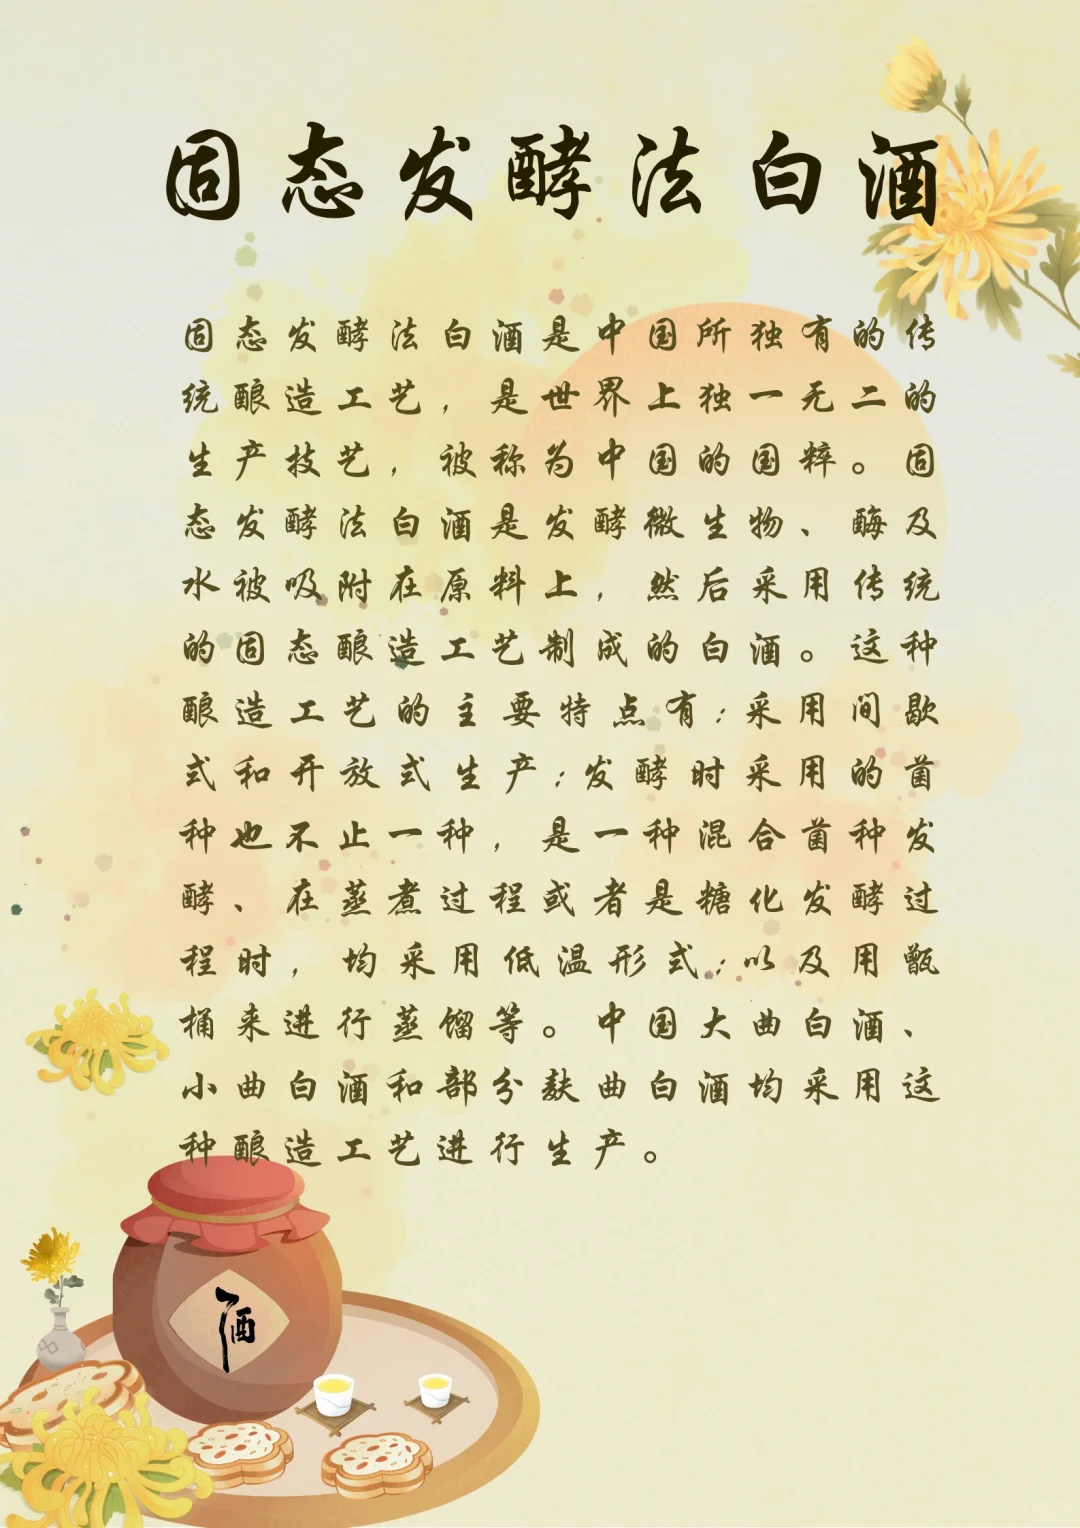 固态发酵法白酒
固态发酵法白酒是中国所独有的传
统酿造工艺，是世界上独一无二的
生产技艺，被称为中国的国粹。固
态发酵法白酒是发酵微生物、酶及
水被吸附在原料上，然后采用传统
的固态酿造工艺制成的白酒。这种
酿造工艺的主要特点有：采用间歇
式和开放式生产；发酵时采用的菌
种也不止一种，是一种混合菌种发
酵、在蒸煮过程或者是糖化发酵过
程时，均采用低温形式；以及用甑
桶来进行蒸馏等。中国大曲白酒、
小曲白酒和部分麸曲白酒均采用这
种酿造工艺进行生产。
酒